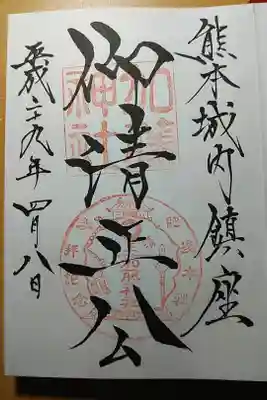 熊本城内鎮座
仰清正公
平成二十九年 四月八日
加藤
神社